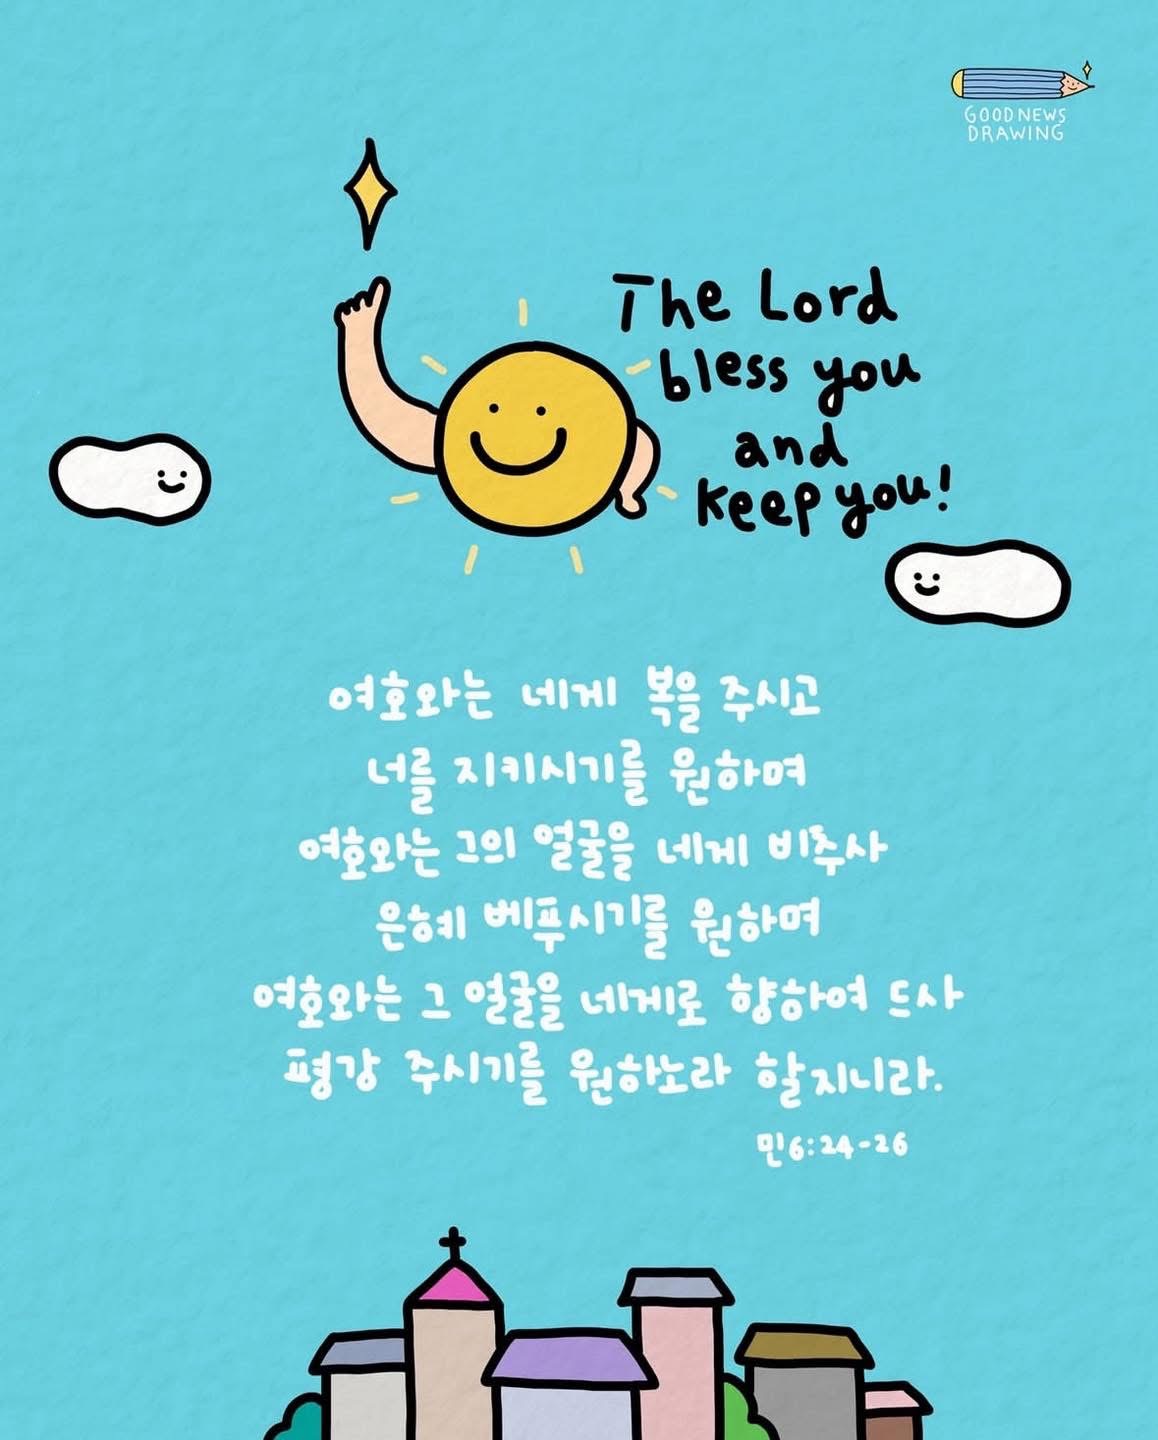 GOODNEWS
DRAWING
The Lord
bless you
and
keep you!
여호와는 네게 복을 주시고
너를 지키시기를 원하며
여호와는 그의 얼굴을 네게 비추사
은혜 베푸시기를 원하며
여호와는 그 얼굴을 네게로 향하여 드사
평강 주시기를 원하노라 할지니라.
민6:24-26